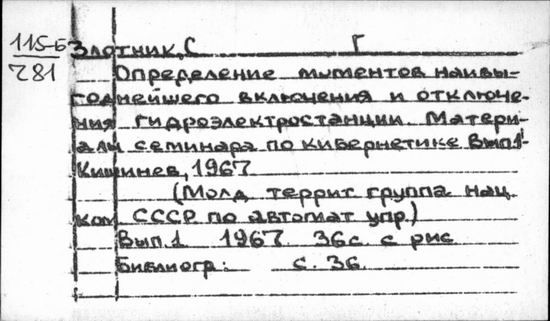 115-Б
281
Злотник, С Г
Определение моментов наивы-
годнейшего включения и отключе-
ния гидроэлектростанции. Матери-
алы семинара по кибернетике Вып1
Кишинев, 1967
(Молд террит группа нац.
ком СССР по автомат упр.)
Вып. 1 1967 36с. с рис
Библиогр: с. 36